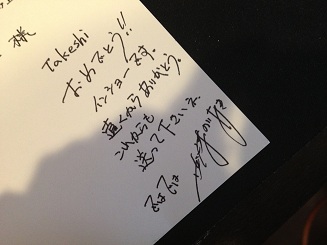 様
Takeshi
おめでとう!!
イショーです。
遠くからありがとう。
これからも
送って下さいネ
ではでは